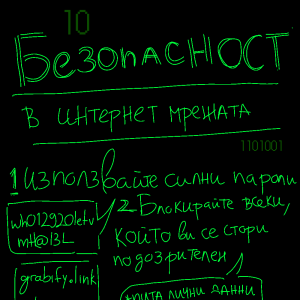 10
Безопасност
в интернет мрежата
1101001
1 използвайте силни пароли
wh0129.0letv
mH@l3L
2 Блокирайте всеки,
който ви се стори
подозрителен
grabify.link
лични данни